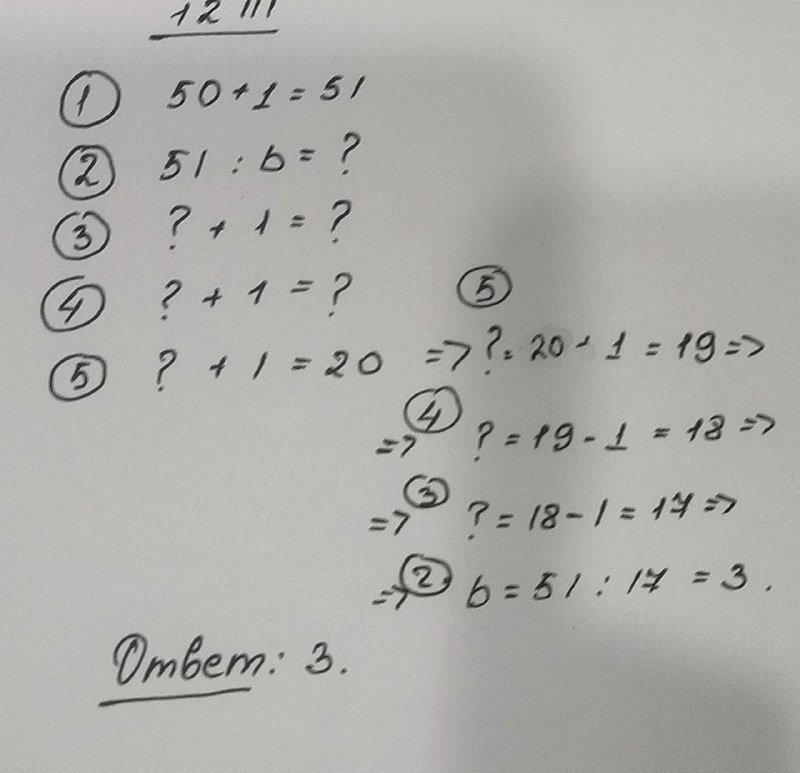 ① 50 + 1 = 51
② 51 : b = ?
③ ? + 1 = ?
④ ? + 1 = ?
⑤
⑤ ? + 1 = 20 => ? = 20 - 1 = 19 =>
=> ④ ? = 19 - 1 = 18 =>
=> ③ ? = 18 - 1 = 17 =>
=> ② b = 51 : 17 = 3.
Ответ: 3.